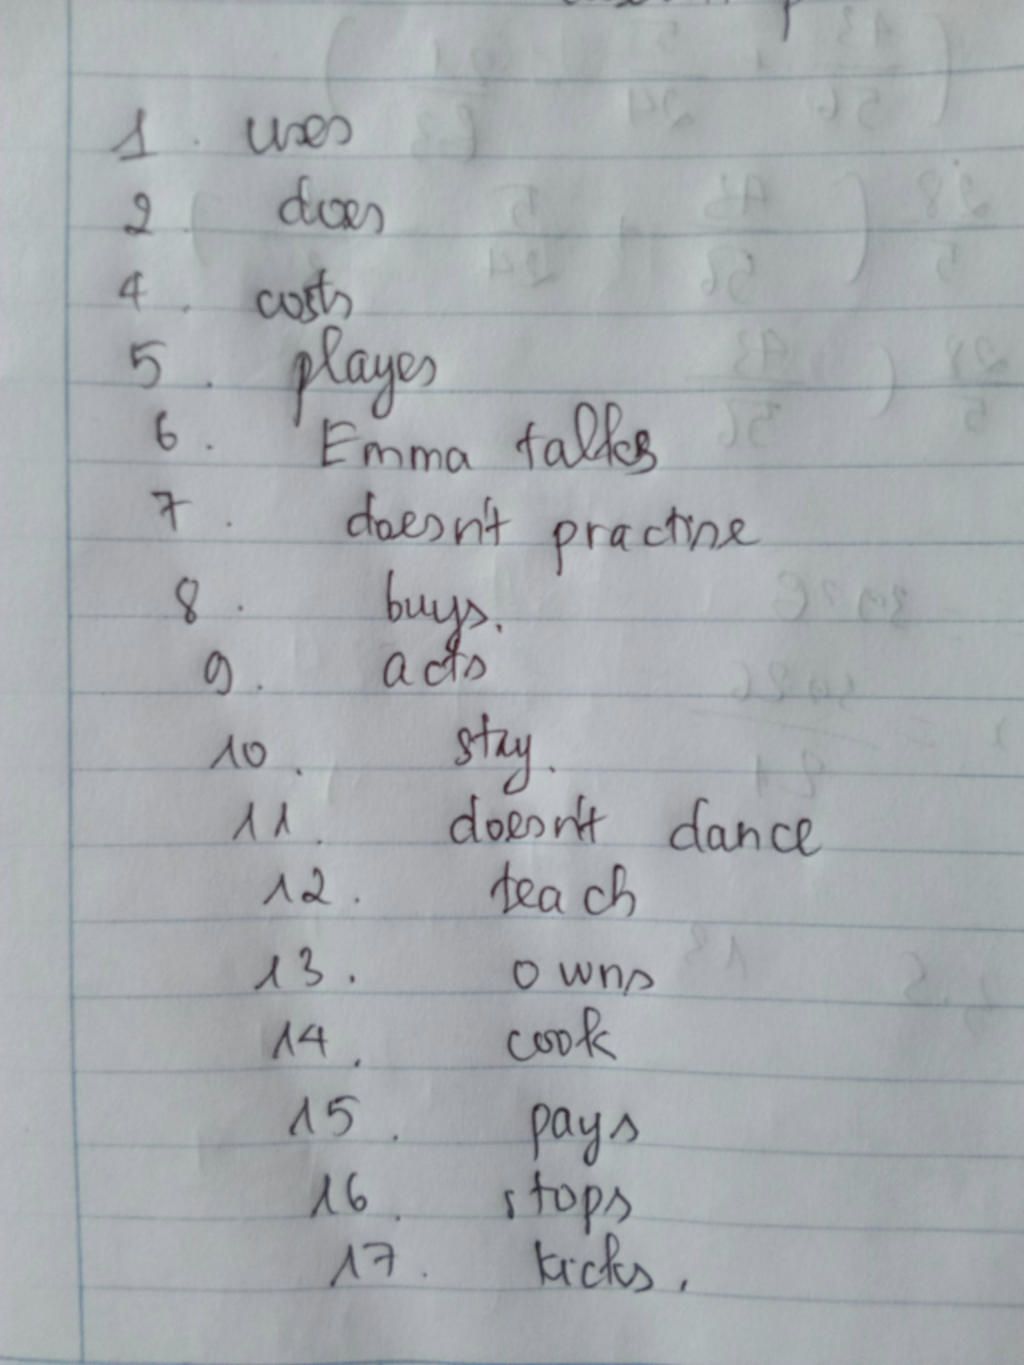 1. uses
2 does
4. costs
5. playes
6. Emma talks
7. doesn't practise
8. buys.
9. acts
10. stay.
11. doesn't dance
12. teach
13. owns
14. cook
15. pays
16. stops
17. kicks.